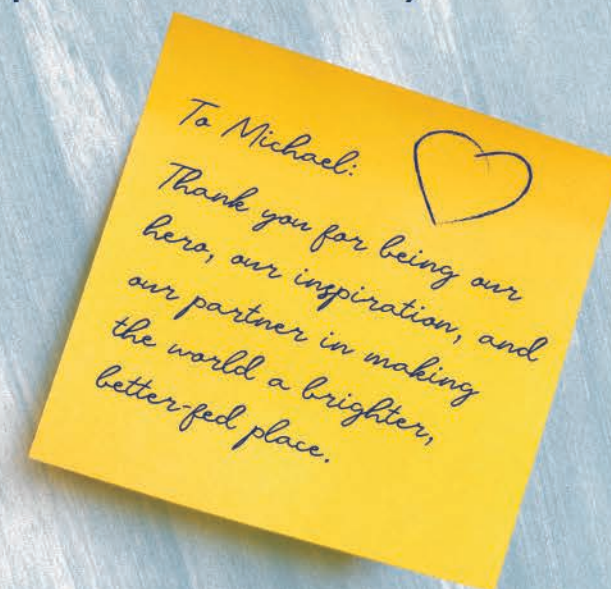 To Michael:
Thank you for being our
hero, our inspiration, and
our partner in making
the world a brighter,
better-fed place.